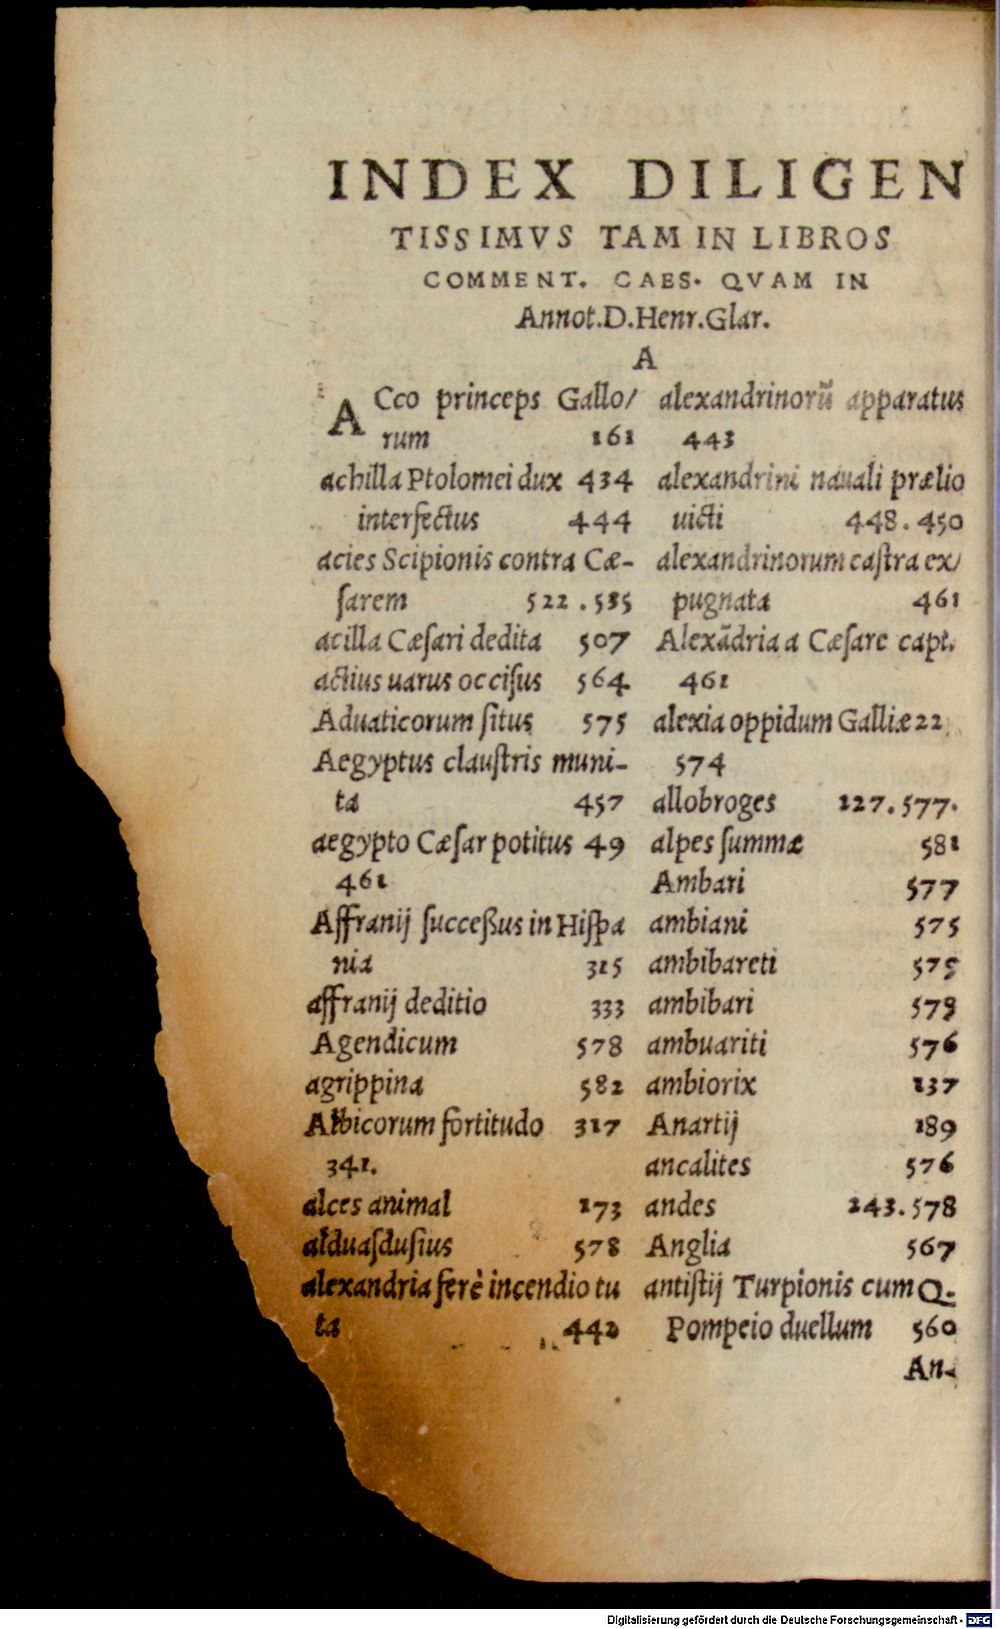 INDEX DILIGEN
TISSIMVS TAM IN LIBROS
COMMENT. CAES. QVAM IN
Annot.D.Henr.Glar.
A
ACco princeps Gallo/
rum 161
achilla Ptolomei dux 434
interfectus 444
acies Scipionis contra Cæ-
ſarem 522.535
acilla Cæſari dedita 507
actius uarus occiſus 564
Aduaticorum ſitus 575
Aegyptus clauſtris muni-
ta 457
aegypto Cæſar potitus 49
461
Affranij ſucceßus in Hiſpa
nia 315
affranij deditio 333
Agendicum 578
agrippina 582
Albicorum fortitudo 317
341.
alces animal 173
alduaſduſius 578
alexandria ferè incendio tu
ta 442
alexandrinorũ apparatus
443
alexandrini nauali prælio
uicti 448.450
alexandrinorum caſtra ex/
pugnata 461
Alexãdria a Cæſare capt.
461
alexia oppidum Galliæ 22
574
allobroges 127.577.
alpes ſummæ 581
Ambari 577
ambiani 575
ambibareti 579
ambibari 579
ambuariti 576
ambiorix 137
Anartij 189
ancalites 576
andes 243.578
Anglia 567
antiſtij Turpionis cum Q.
Pompeio duellum 560
An-
Digitalisierung gefördert durch die Deutsche Forschungsgemeinschaft - DFG